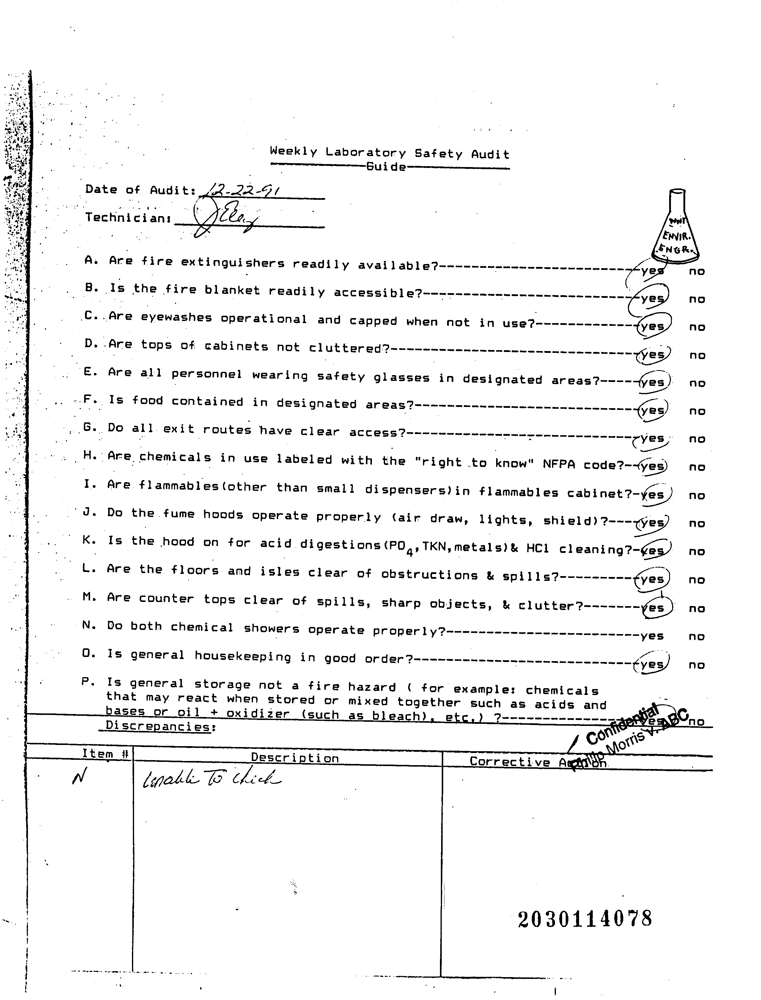 Weekly Laboratory Safety Audit
Guide
Date of Audit: 12-22-91
Technician:
ENVIR.
ENGR.
A. Are fire extinguishers readily available?---yes no
B. Is the fire blanket readily accessible?---yes no
C. Are eyewashes operational and capped when not in use?---yes no
D. Are tops of cabinets not cluttered?---yes no
E. Are all personnel wearing safety glasses in designated areas?---yes no
F. Is food contained in designated areas?---yes no
G. Do all exit routes have clear access?---yes no
H. Are chemicals in use labeled with the "right to know" NFPA code?--yes no
I. Are flammables(other than small dispensers)in flammables cabinet?-yes no
J. Do the fume hoods operate properly (air draw, lights, shield)?---yes no
K. Is the hood on for acid digestions(PO4,TKN,metals)& HCl cleaning?-yes no
L. Are the floors and isles clear of obstructions & spills?---yes no
M. Are counter tops clear of spills, sharp objects, & clutter?---yes no
N. Do both chemical showers operate properly?---yes no
O. Is general housekeeping in good order?---yes no
P. Is general storage not a fire hazard ( for example: chemicals
that may react when stored or mixed together such as acids and
bases or oil + oxidizer (such as bleach), etc.) ?---yes no
Confidential
Philip Morris v. ABC
Discrepancies:
Item # Description Corrective Action
N Unable To Check
2030114078